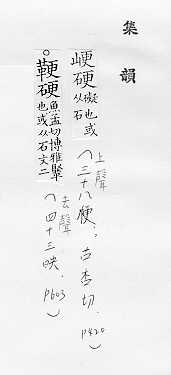 集韻
峺硬礙也或从石
上聲
(三十八梗,古杏切. P420)
○鞕硬魚孟切博雅堅也或从石文二
去聲
(四十三映. P603)